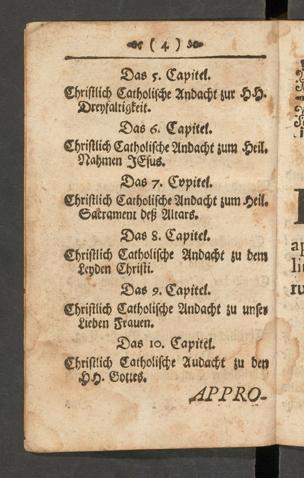 ( 4 )
Das 5. Capitel.
Christlich Catholische Andacht zur HH.
Dreyfaltigkeit.
Das 6. Capitel.
Christlich Catholische Andacht zum Heil.
Nahmen JEsus.
Das 7. Cvpitel.
Christlich Catholische Andacht zum Heil.
Sacrament deß Altars.
Das 8. Capitel.
Christlich Catholische Andacht zu dem
Leyden Christi.
Das 9. Capitel.
Christlich Catholische Andacht zu unser
Lieben Frauen.
Das 10. Capitel.
Christlich Catholische Audacht zu den
HH. Gottes.
APPRO-